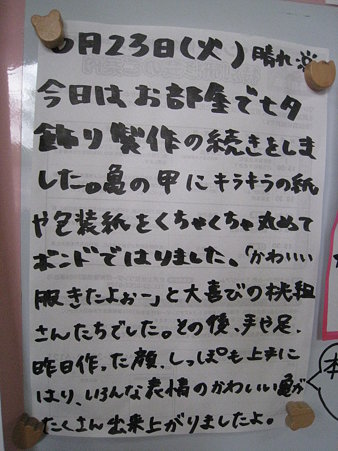 月23日(火) 晴れ
今日はお部屋で七夕
飾り製作の続きをしま
した。亀の甲にキラキラの紙
や包装紙をくちゃくちゃ丸めて
ボンドではりました。「かわいい
服きたよぉー」と大喜びの桃組
さんたちでした。その後、手や足、
昨日作った顔、しっぽも上手に
はり、いろんな表情のかわいい亀が
たくさん出来上がりましたよ。